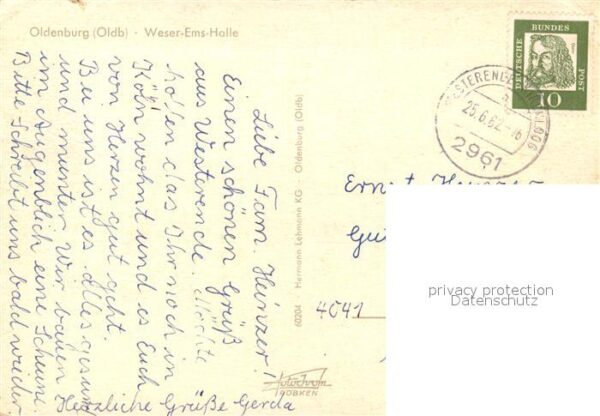 Oldenburg (Oldb) · Weser-Ems-Halle
Liebe Fam. Heinzer!
Einen schönen Grüß
aus Westerende. Möchte
hofen das Ihr noch in
Köln wohnt und es Euch
von Herzen gut geht.
Bei uns ist es. Alles gesund
und munter. Wir bauen
im Augenblich eine Scheune.
Bitte Schreibt uns bald wieder
Herzliche Grüße Gerda
60204 Hermann Lohmann KG · Oldenburg (Oldb)
DEUTSCHE
BUNDES
POST
10
25.6.62-16
2961
Ernst
4041
privacy protection
Datenschutz